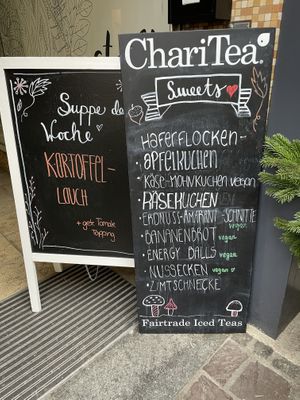 Suppe der
Woche
KARTOFFEL-
LAUCH
+ getr. Tomate
Topping
ChariTea
Sweets
HAFERFLOCKEN-
• APFELKUCHEN
• KÄSE-MOHNKUCHEN vegan
• KÄSEKUCHEN
• ERDNUSS-AMARANT-SCHNITTE
vegan
• BANANENBROT vegan
• ENERGY BALLS vegan
• NUSSECKEN vegan
• ZIMTSCHNECKE
Fairtrade Iced Teas